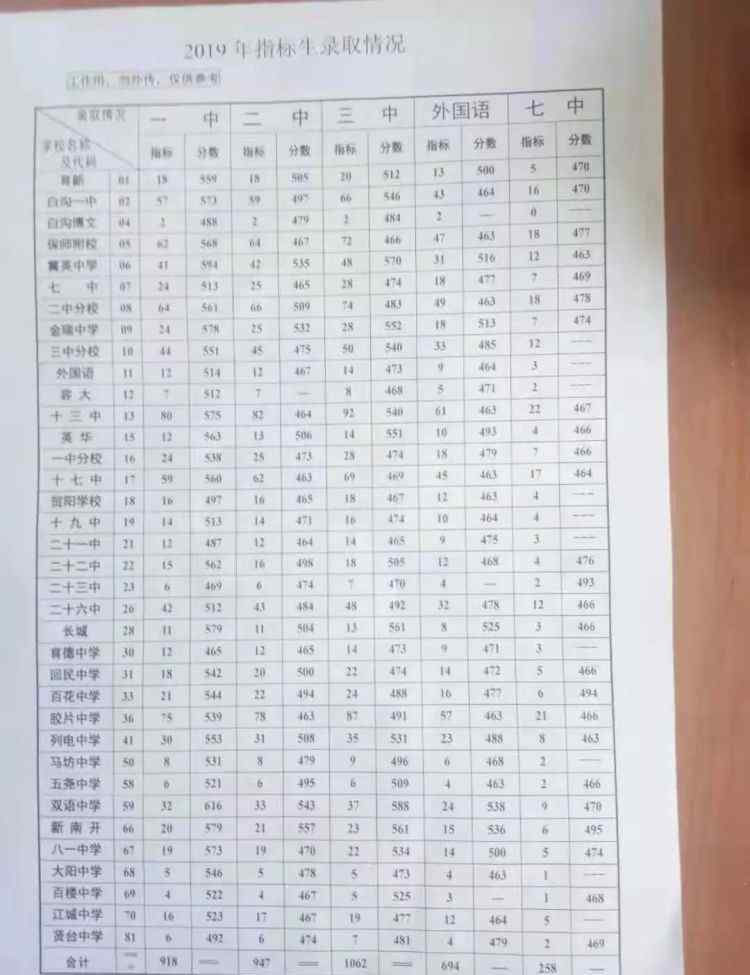 2019年指标生录取情况
工作用，勿外传，仅供参考
录取情况 一中 二中 三中 外国语 七中
学校名称及代码 指标 分数 指标 分数 指标 分数 指标 分数 指标 分数
育新 01 18 559 18 505 20 512 13 500 5 470
白沟一中 02 57 573 59 497 66 546 43 464 16 470
白沟博文 04 2 488 2 479 2 484 2 — 0 ---
保师附校 05 62 568 64 467 72 466 47 463 18 477
冀英中学 06 41 594 42 535 48 570 31 516 12 463
七中 07 24 513 25 465 28 474 18 477 7 469
二中分校 08 64 561 66 509 74 483 49 463 18 478
金瑞中学 09 24 578 25 532 28 552 18 513 7 474
三中分校 10 44 551 45 475 50 540 33 485 12 ---
外国语 11 12 514 12 467 14 473 9 464 3 ---
容大 12 7 512 7 — 8 468 5 471 2 ---
十三中 13 80 575 82 464 92 540 61 463 22 467
英华 15 12 563 13 506 14 551 10 493 4 466
一中分校 16 24 538 25 473 28 474 18 479 7 466
十七中 17 59 560 62 463 69 469 45 463 17 464
贺阳学校 18 16 497 16 465 18 467 12 463 4 ---
十九中 19 14 513 14 471 16 474 10 464 4 ---
二十一中 21 12 487 12 464 14 465 9 475 3 ---
二十二中 22 15 562 16 498 18 505 12 468 4 476
二十三中 23 6 469 6 474 7 470 4 — 2 493
二十六中 26 42 512 43 484 48 492 32 478 12 466
长城 28 11 579 11 504 13 561 8 525 3 466
育德中学 30 12 465 12 465 14 473 9 471 3 ---
回民中学 31 18 542 20 500 22 474 14 472 5 466
百花中学 33 21 544 22 494 24 488 16 477 6 494
胶片中学 36 75 539 78 463 87 491 57 463 21 466
列电中学 41 30 553 31 508 35 531 23 488 8 463
马坊中学 50 8 531 8 479 9 496 6 468 2 ---
五尧中学 58 6 521 6 495 6 509 4 463 2 466
双语中学 59 32 616 33 543 37 588 24 538 9 470
新南开 66 20 579 21 557 23 561 15 536 6 495
八一中学 67 19 573 19 470 22 534 14 500 5 474
大阳中学 68 5 546 5 478 5 473 4 463 1 ---
百楼中学 69 4 522 4 467 5 525 3 — 1 468
江城中学 70 16 523 17 467 19 477 12 464 5 ---
贤台中学 81 6 492 6 474 7 481 4 479 2 469
合计 918 — 947 — 1062 — 694 — 258